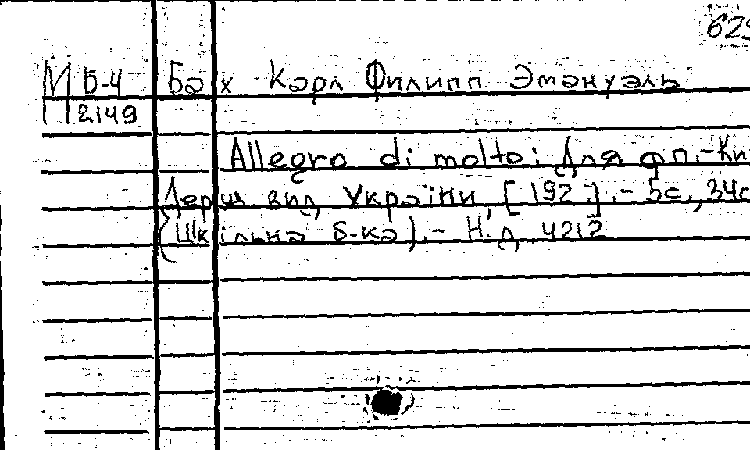 629
М Б-4 Бах Карл Филипп Эмануэль
П 2149
Allegro di molto: Для фп.-Ки
Держ вид України, [192 ].- 5с., 34с
(Шкільна б-ка).- Н. д. 4212